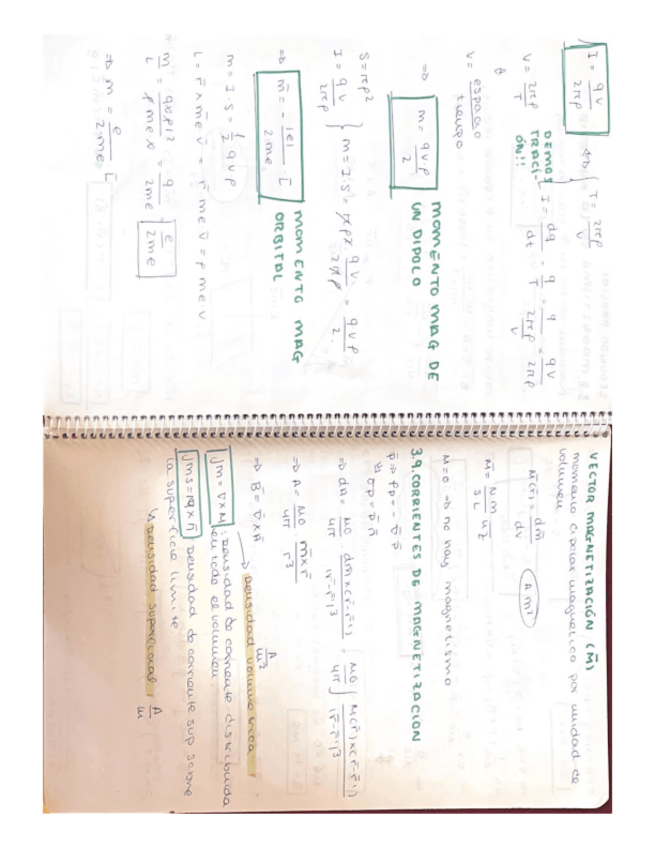 I = qv / 2πρ ⇔ { T = 2πρ / v
DEMOSTRACIÓN!!
V = 2πρ / T
I = dq / dt = q / T = q / (2πρ / v) = qv / 2πρ
V = espacio / tiempo
⇒ m = qvρ / 2 MOMENTO MAG DE UN DIPOLO
S = πρ²
I = qv / 2πρ } m = I·S = πρ² qv / 2πρ = qvρ / 2
⇒ m̄ = - |e| / 2me · L̄ MOMENTO MAG ORBITAL
m = I·S = 1/2 qvρ
L = r̄ × me v̄ = r̄ me v̄ = ρ me·v
m / L = qvρ/2 / ρ me v = q / 2me = e / 2me
⇒ m̄ = e / 2·me L̄
VECTOR MAGNETIZACIÓN (M̄)
momento dipolar magnético por unidad de
volumen
M̄(r̄) = dm̄ / dv (A m⁻¹)
M̄ = Nm / SL uz
M=0 → no hay magnetismo
3.9. CORRIENTES DE MAGNETIZACION
p̄ → ρp = - ∇ p̄
σp = p̄ n̄
⇒ dA = μ0 / 4π dm × (r̄-r̄') / |r̄-r̄'|³ ; μ0 / 4π ∫ M(r̄') × (r̄-r̄') / |r̄-r̄'|³
⇒ A = μ0 / 4π m̄×r̄ / r³
⇒ B̄ = ∇ × Ā
Densidad volumétrica A / m²
Jm = ∇×M densidad de corriente distribuida
en todo el volumen
Jms = M × n̄ densidad de corriente sup sobre
la superficie límite
↳ Densidad superficial A / m